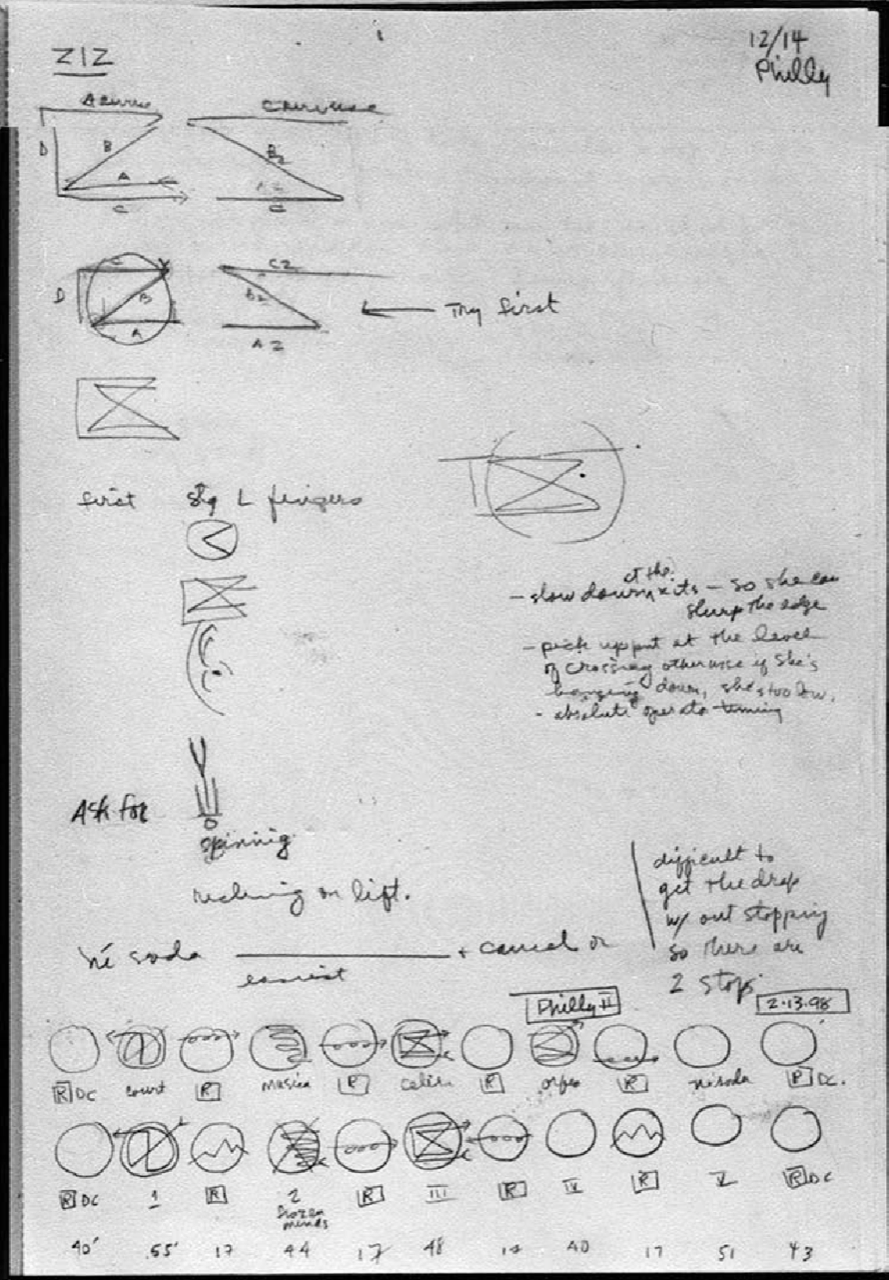 ZIZ
12/14
Philly
D B A C
B2 A2 C
C
D B A
C2 B2 A2
← Try first
first L fingers
- slow down at the exits - so she can
slurp the edge
- pick up put at the level
of crossing otherwise if she's
hanging down, she's too low.
- absolute operator timing
Ask for
spinning
reclining on lift.
ní soda + cancel or
easiest
difficult to
get the drop
w/ out stopping
so there are
2 stops
Philly II 2.13.98
R DC court R R R orfeo R nisoda R DC.
R DC 1 R 2 R III R IV R V R DC
frozen
minds
40' .55' 17 44 17 48 17 40 17 51 43